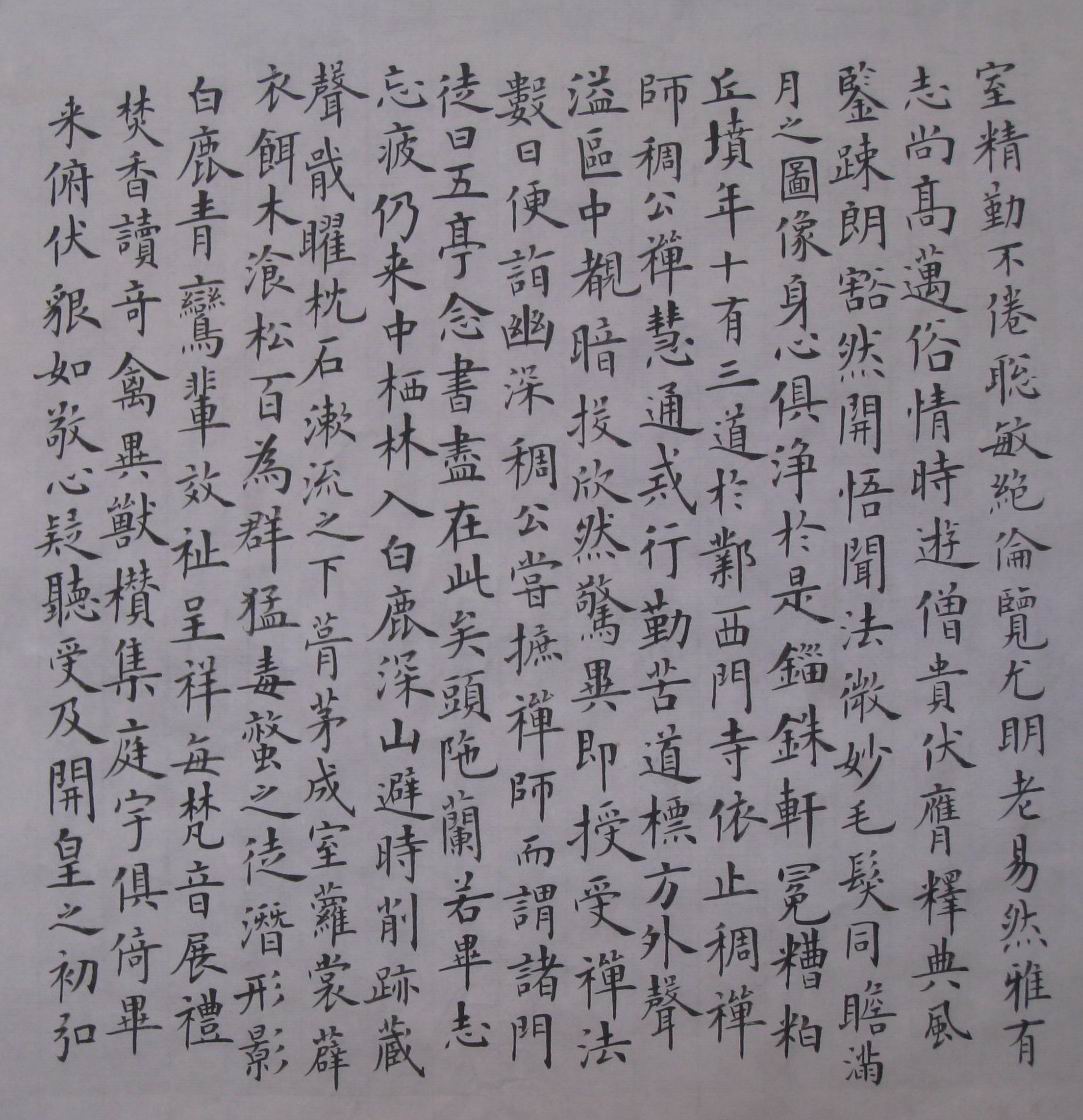 室精勤不倦聡敏絕倫覽尤明老易然雅有
志尚髙邁俗情時遊僧貴伏膺釋典風
鑒踈朗豁然開悟聞法微妙毛髮同瞻滿
月之圖像身心俱淨於是錙銖軒冕糟粕
丘墳年十有三道於鄴西門寺依止稠禪
師稠公禪慧通戒行勤苦道標方外聲
溢區中覩暗投欣然驚異即授受禪法
數日便詣幽深稠公嘗撫禪師而謂諸門
徒曰五亭念書盡在此矣頭陁蘭若畢志
忘疲仍来中栖林入白鹿深山避時削跡蔵
聲戢曜枕石漱流之下葺茅成室蘿裳薜
衣餌木飡松百為群猛毒螫之徒潛形影
白鹿青鸞輩效祉呈祥每梵音展禮
焚香讀奇禽異獸欑集庭宇俱倚畢
来俯伏貌如敬心疑聽受及開皇之初弘